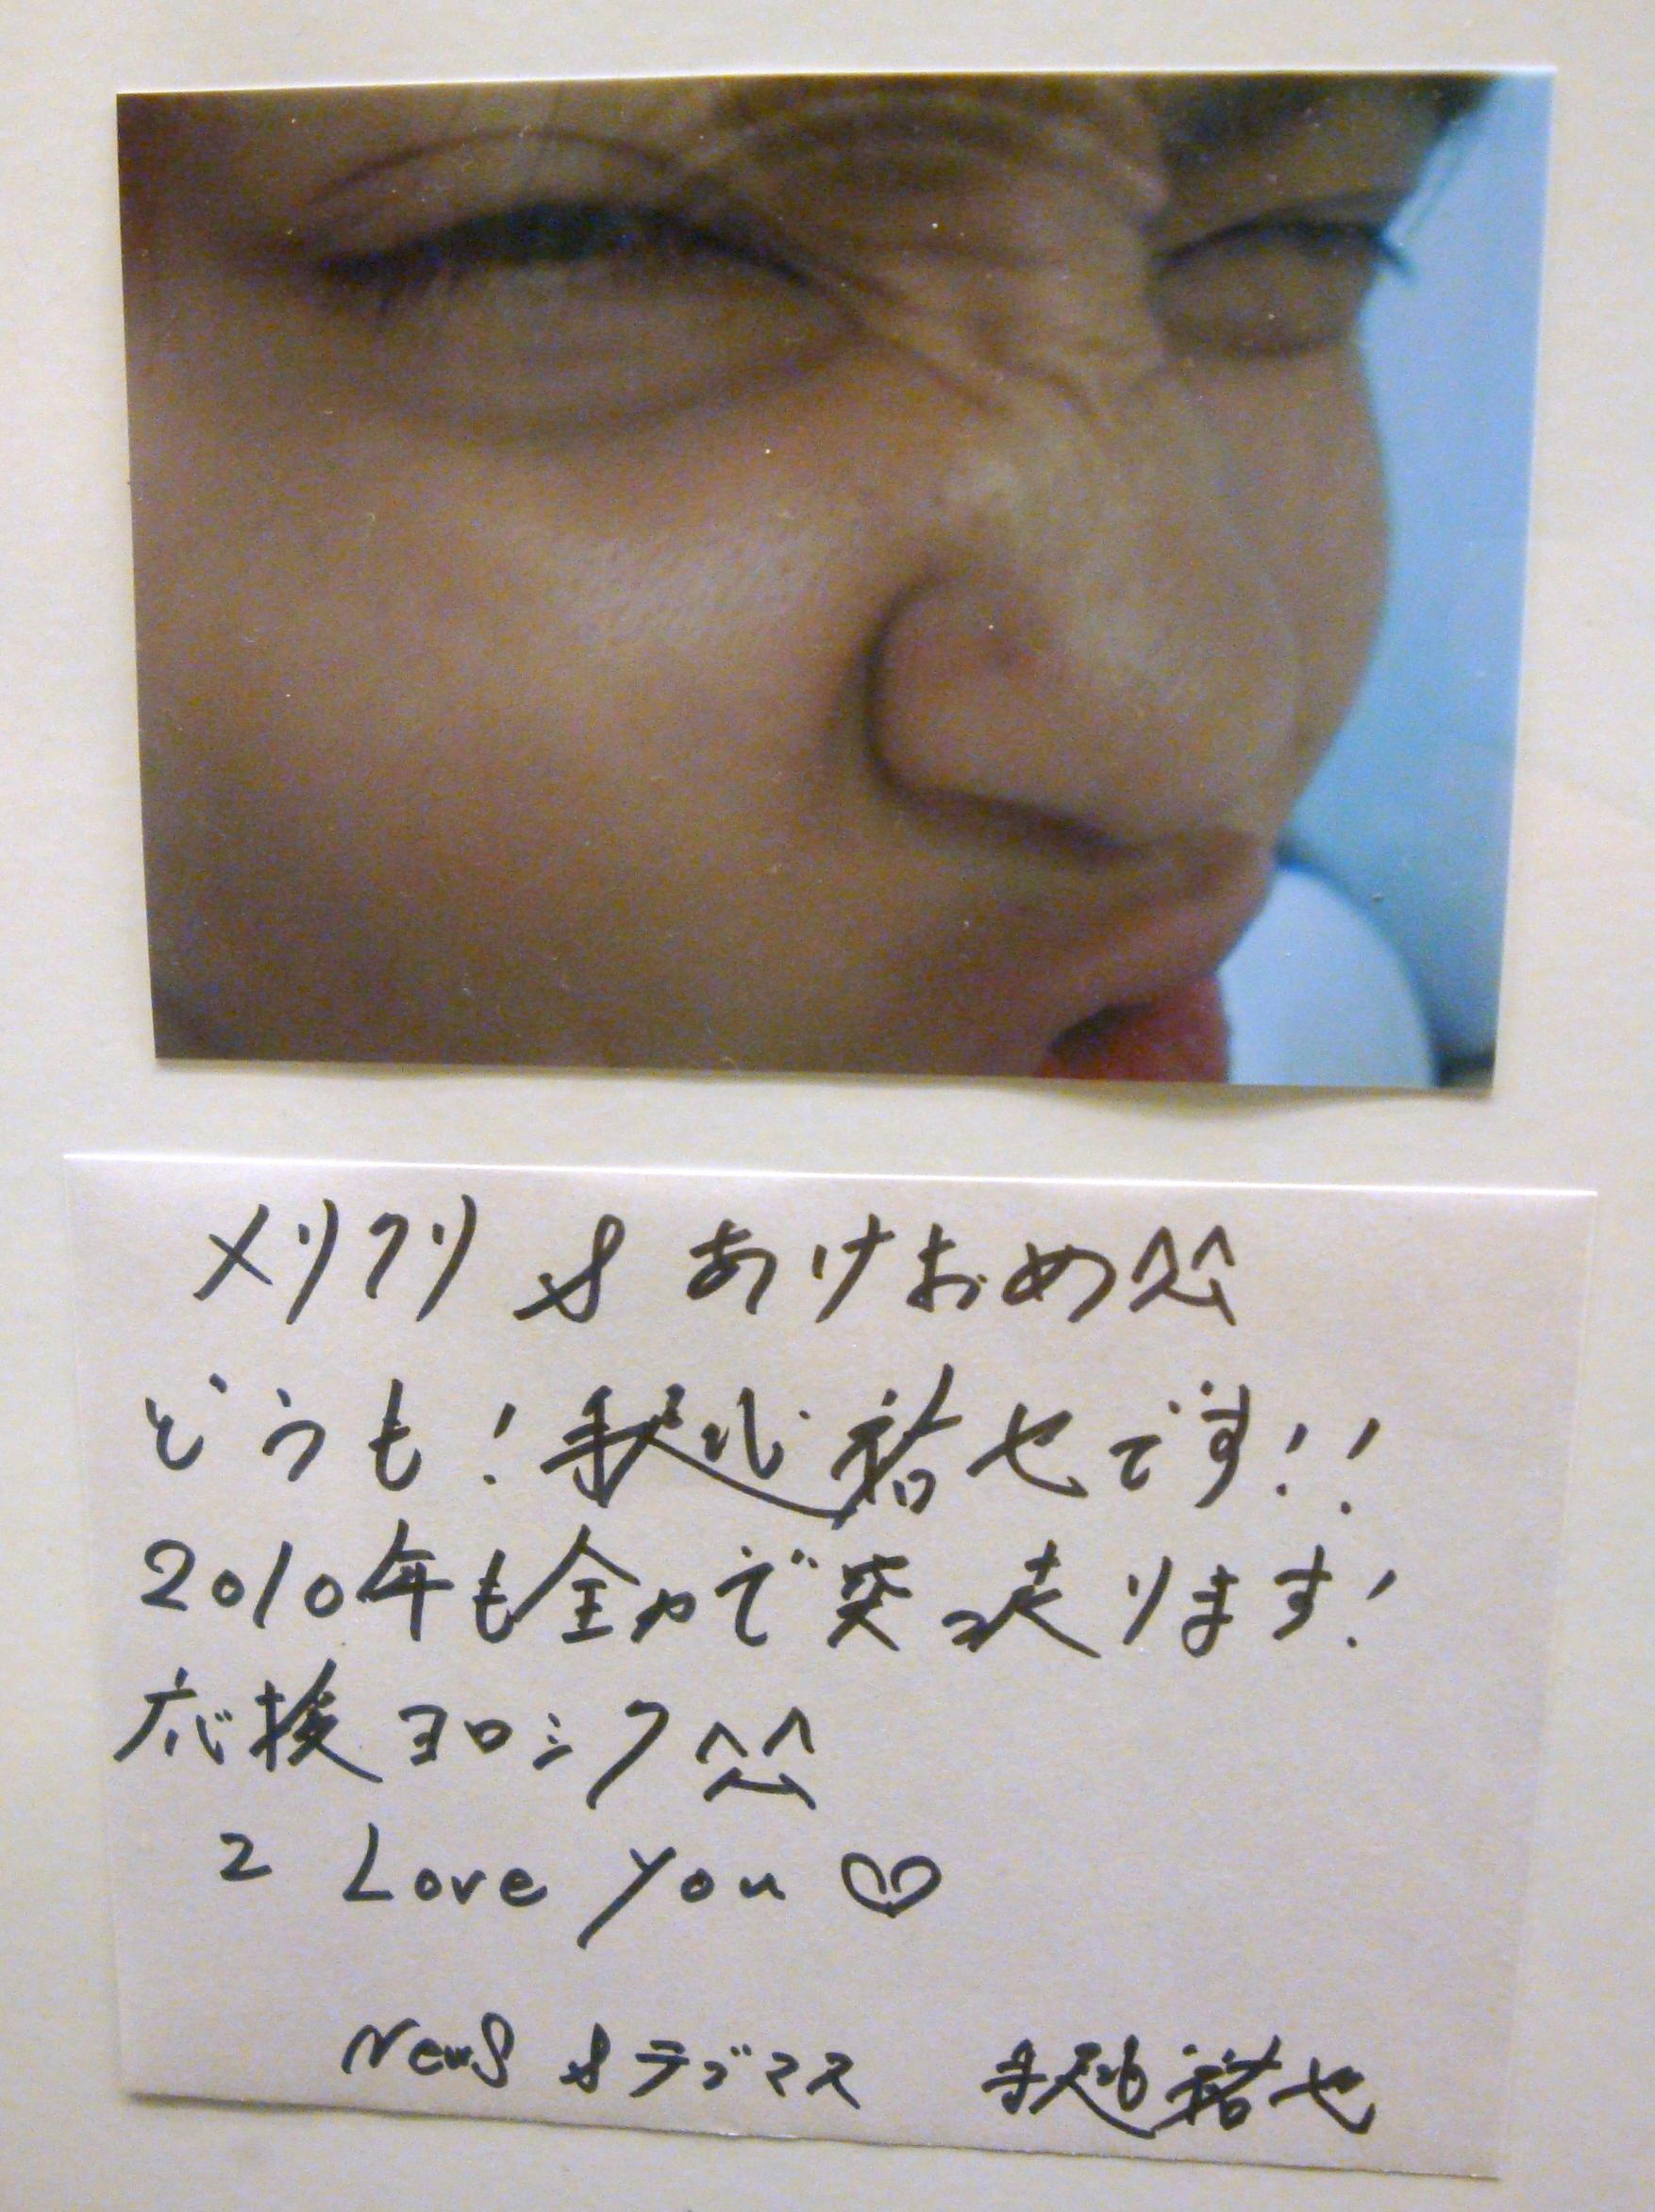 メリクリ & あけおめ^^
どうも!手越祐也です!!
2010年も全力で突っ走ります!
応援ヨロシク^^
2 Love you ♡
NewS & テゴマス 手越祐也